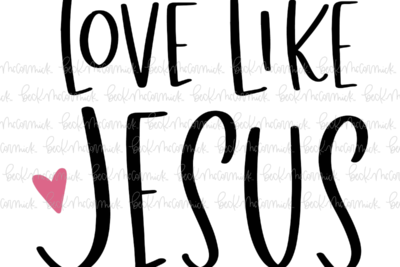 LOVE LIKE
JESUS